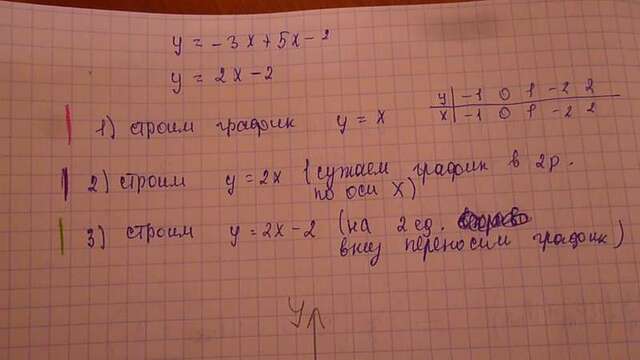 y = -3x + 5x - 2
y = 2x - 2
1) строим график y = x
y | -1 0 1 -2 2
x | -1 0 1 -2 2
2) строим y = 2x (сужаем график в 2р.
по оси X)
3) строим y = 2x - 2 (на 2 ед.
вниз переносим график)
y